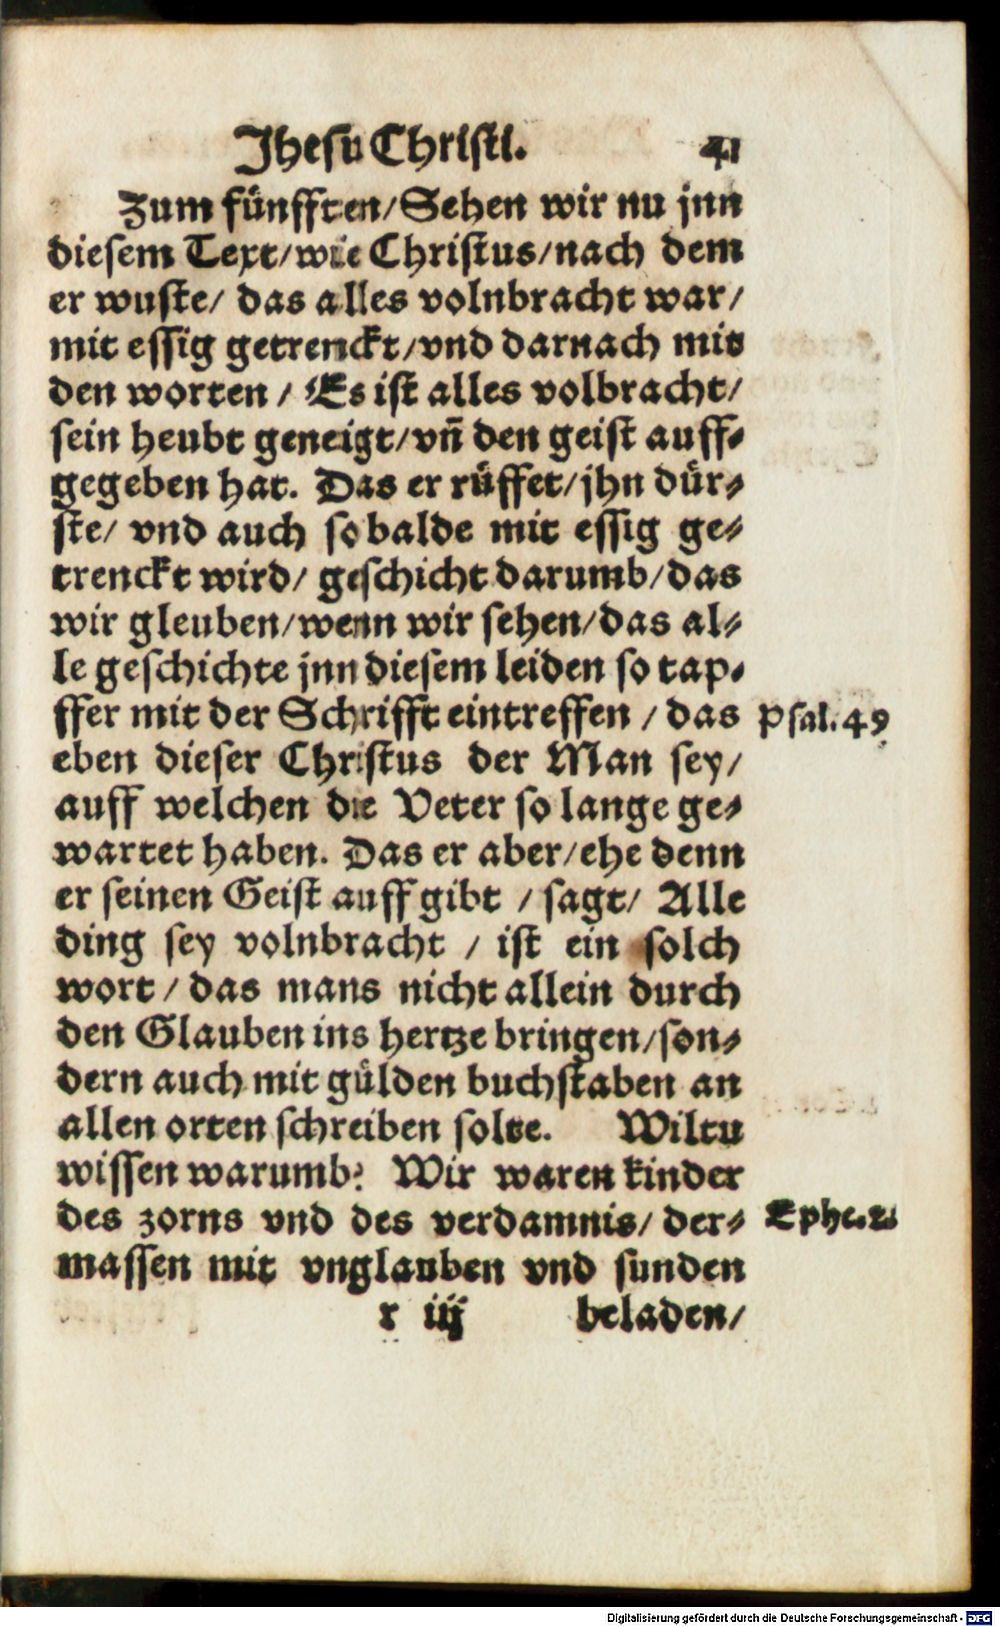 Jhesu Christi. 41
Zum fünfften/Sehen wir nu jnn
diesem Text/wie Christus/nach dem
er wuste/ das alles volnbracht war/
mit essig getrenckt/vnd darnach mit
den worten / Es ist alles volbracht/
sein heubt geneigt/vn̄ den geist auff⸗
gegeben hat. Das er rüffet/jhn dür⸗
ste/ vnd auch so balde mit essig ge⸗
trenckt wird/ geschicht darumb/das
wir gleuben/wenn wir sehen/das al⸗
le geschichte jnn diesem leiden so tap⸗
ffer mit der Schrifft eintreffen / das Psal. 49
eben dieser Christus der Man sey/
auff welchen die Veter so lange ge⸗
wartet haben. Das er aber/ehe denn
er seinen Geist auff gibt / sagt/ Alle
ding sey volnbracht / ist ein solch
wort / das mans nicht allein durch
den Glauben ins hertze bringen/son⸗
dern auch mit gülden buchstaben an
allen orten schreiben solte. Wiltu
wissen warumb? Wir waren kinder
des zorns vnd des verdamnis/ der⸗ Ephe. 2.
massen mit vnglauben vnd sunden
r iij beladen/
Digitalisierung gefördert durch die Deutsche Forschungsgemeinschaft - DFG